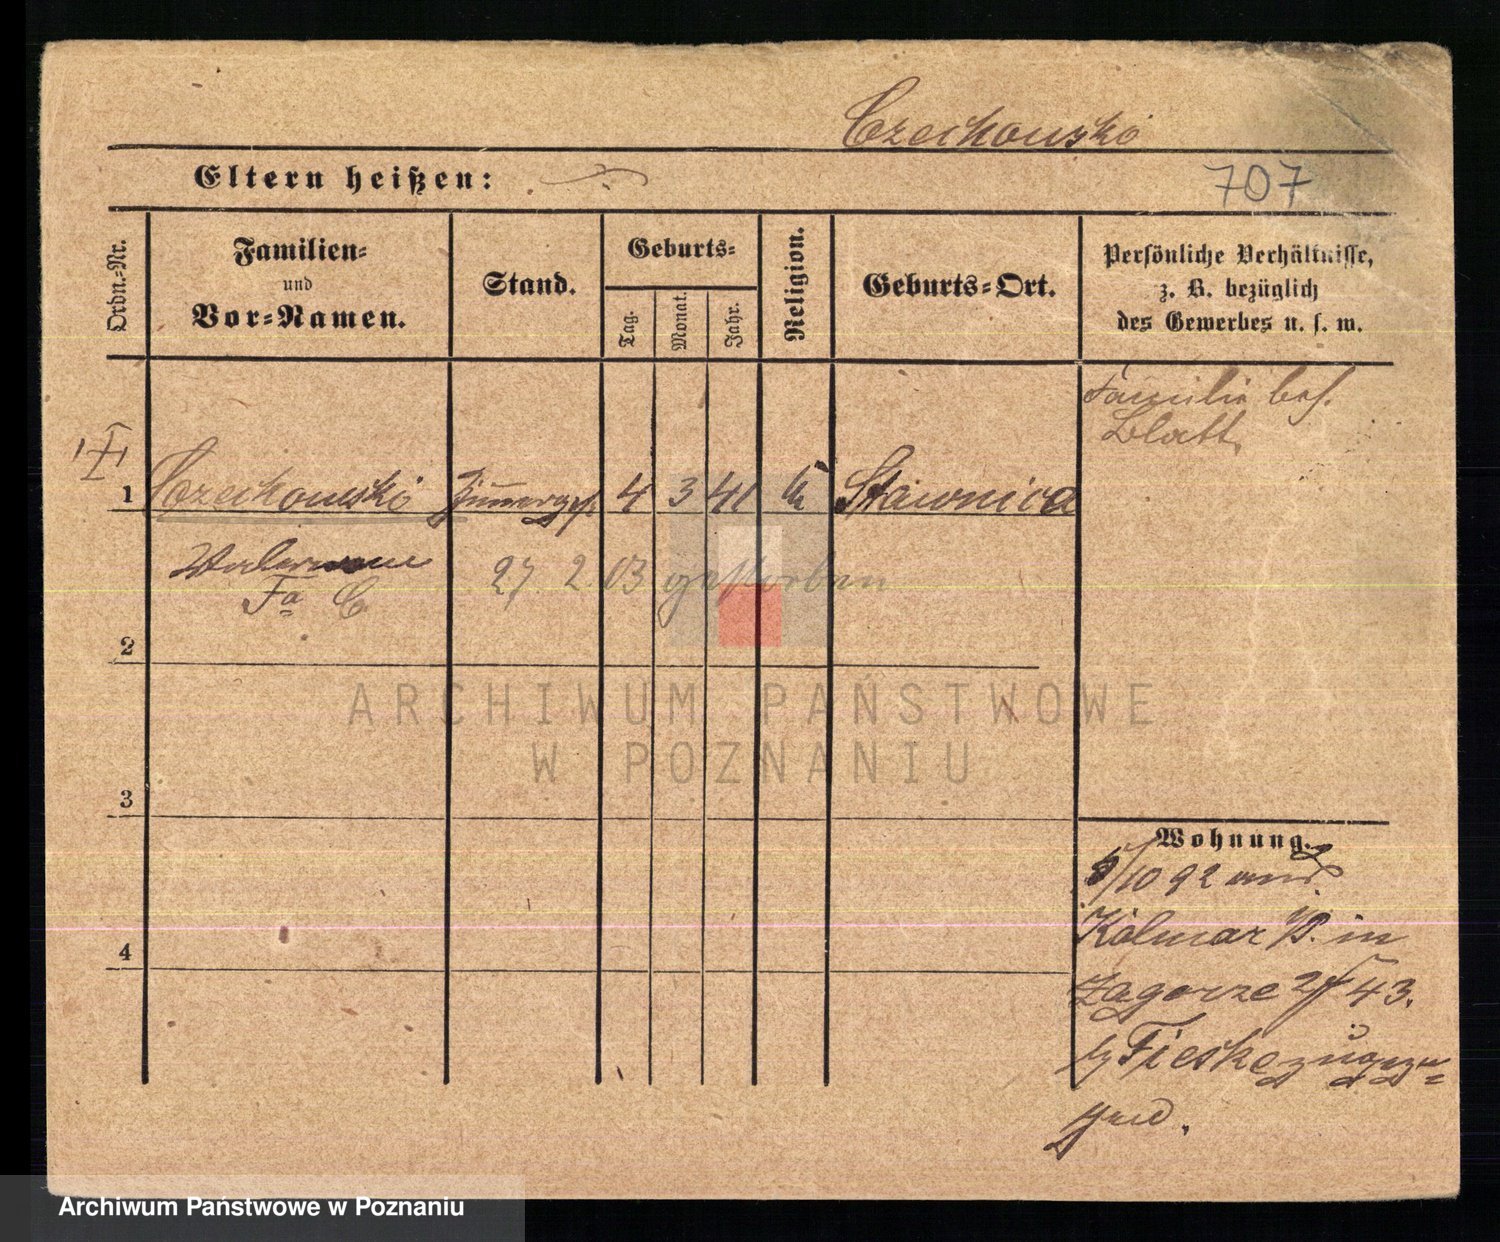 Czechowski
Eltern heißen:
707
Ordn.-Nr.
Familien-
und
Vor-Namen.
Stand.
Geburts-
Tag.
Monat.
Jahr.
Religion.
Geburts-Ort.
Persönliche Verhältnisse,
z. B. bezüglich
des Gewerbes u. s. w.
Familie bes.
Blatt
1 Czechowski Zimmerges. 4 3 41 k Stawnica
27. 2. 03 gestorben
Fa C
2
3
4
Wohnung.
5/10 92 aus
Kolmar i/P. in
Zagorze 2/ 43.
b/ Fieske zugezo=
gen.
ARCHIWUM PAŃSTWOWE
W POZNANIU
Archiwum Państwowe w Poznaniu